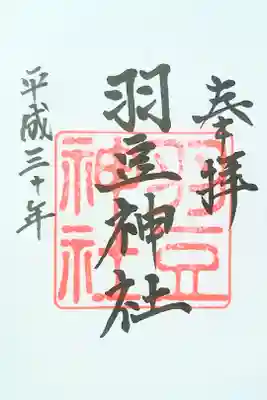 奉拝
羽豆神社
平成三十年
羽豆
神社